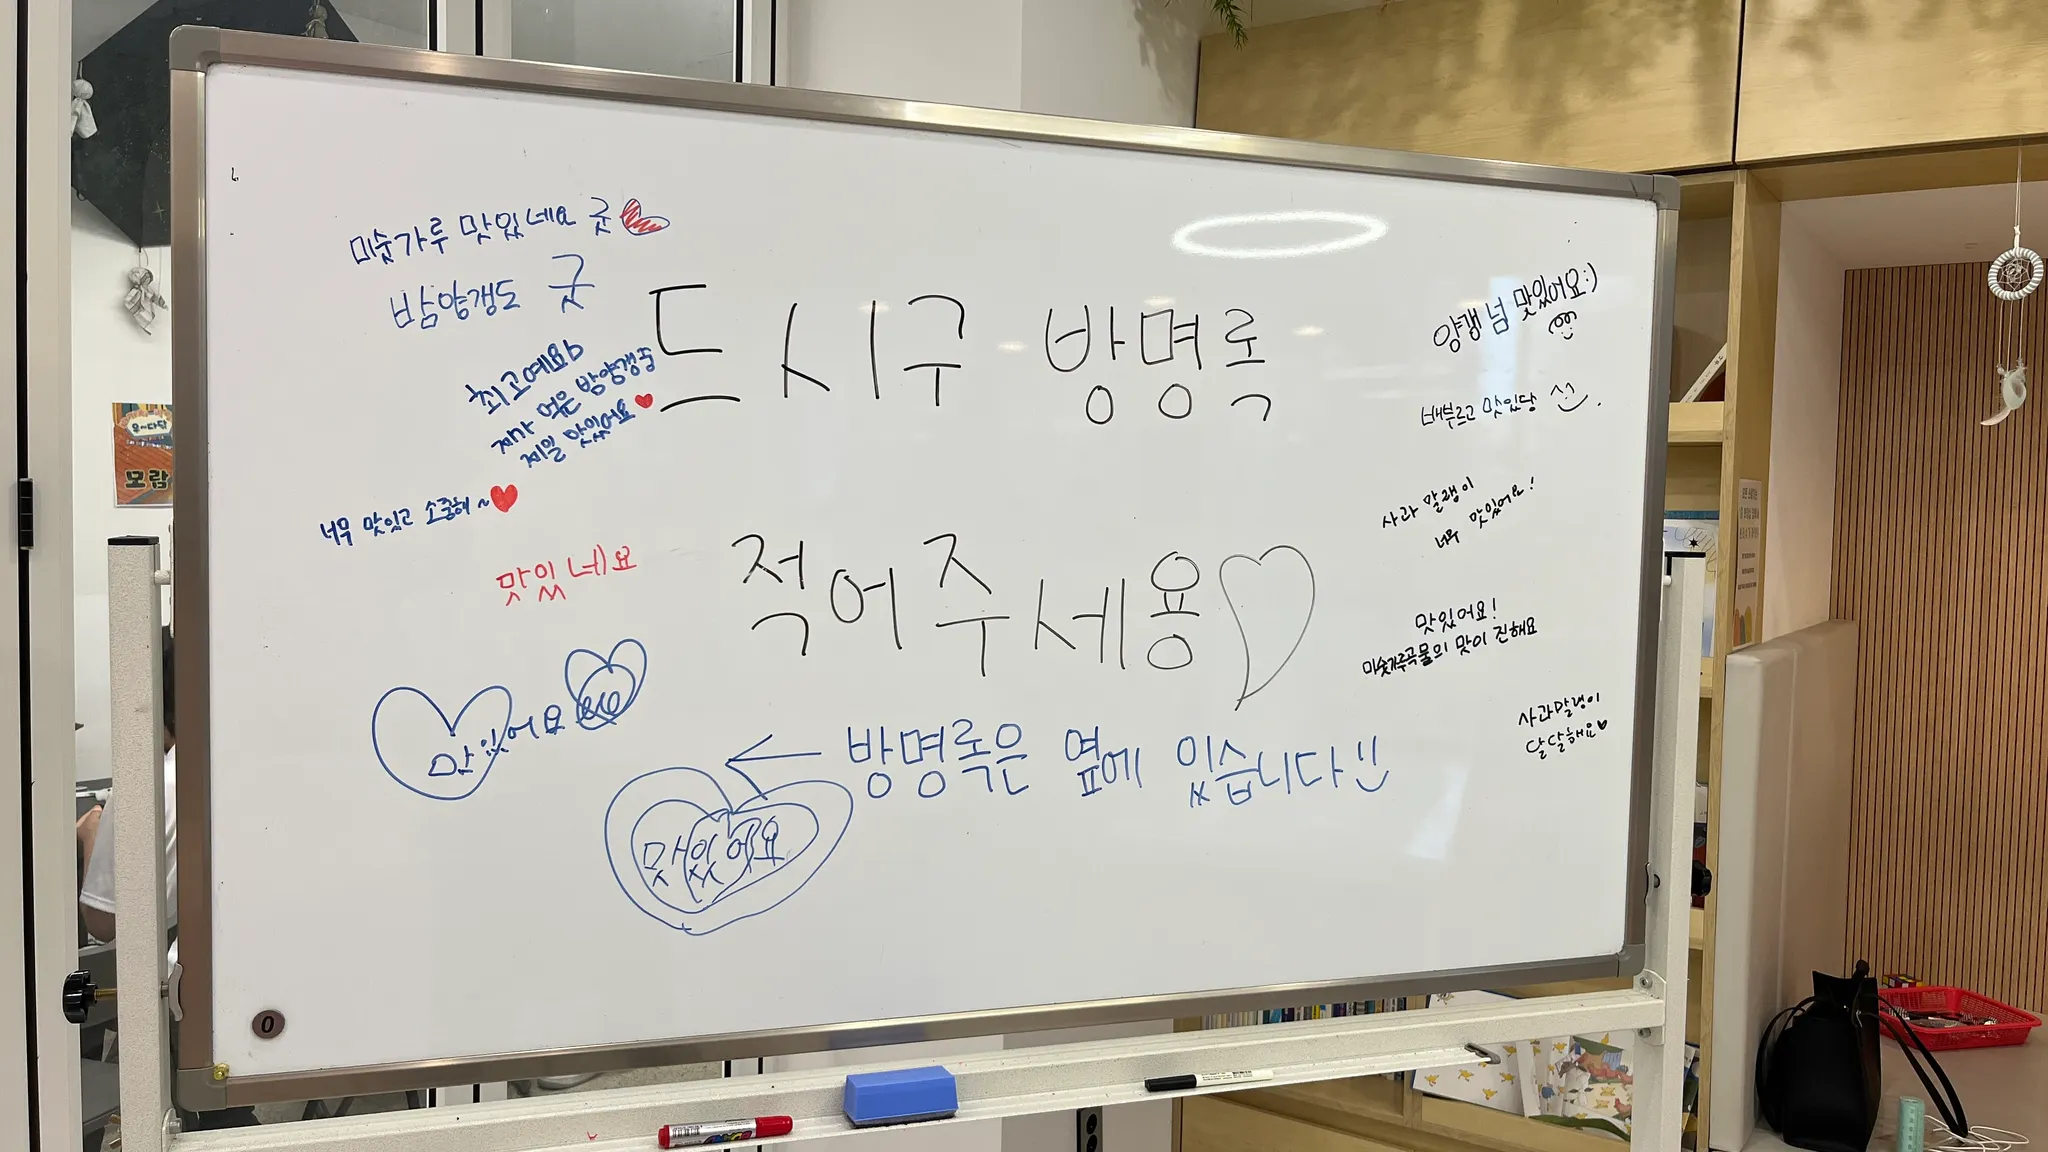 미숫가루 맛있네요 굿
밤양갱도 굿
최고예요b
제가 먹은 밤양갱중
제일 맛있어요
너무 맛있고 소중해~
맛있네요
맛있어요
드시구 방명록
적어주세용
← 방명록은 옆에 있습니다!!
맛있어요
양갱 넘 맛있어요:)
배부르고 맛있당 ^^
사과 말랭이
너무 맛있어요!
맛있어요!
미숫가루곡물의 맛이 진해요
사과말랭이
달달해요
우~다닥
모람